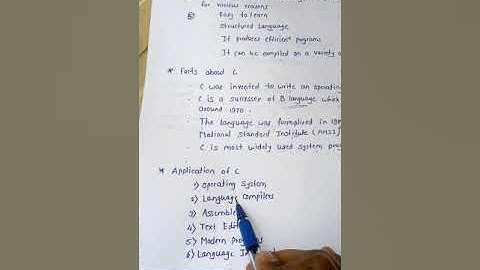 for various reasons
Easy to learn
Structured language
It produces efficient programs
It can be compiled on a variety
* Facts about C
- C was invented to write an operating
- C is a successor of B language which
around 1970.
- The language was formalized in
National Standard Institute (ANSI)
- C is most widely used system
* Application of C
1) Operating System
2) Language Compilers
3)
4) Text
5) Modern
6) Language